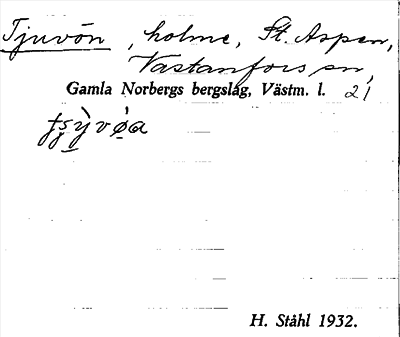 Tjuvön, holme, St. Aspen,
Västanfors sn,
Gamla Norbergs bergslag, Västm. l. 21
H. Ståhl 1932.